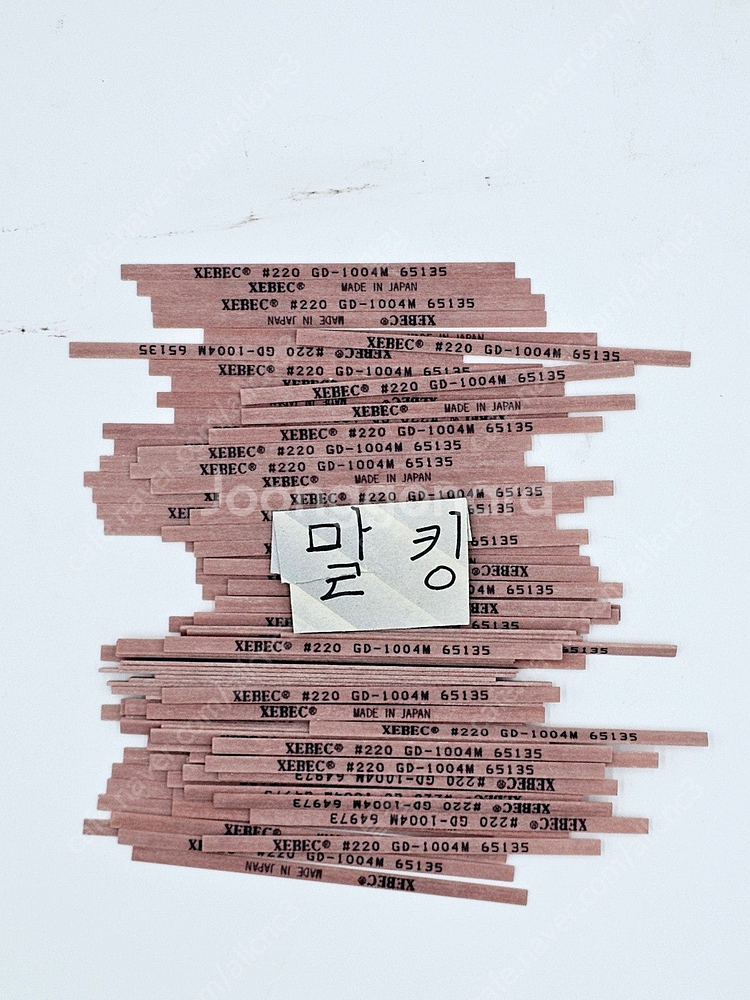 XEBEC® #220 GD-1004M 65135
XEBEC® MADE IN JAPAN
XEBEC® #220 GD-1004M 65135
XEBEC® MADE IN JAPAN
XEBEC® #220 GD-1004M 65135
XEBEC® #220 GD-1004M 65135
XEBEC® #220 GD-1004M 65135
XEBEC® #220 GD-1004M 65135
XEBEC® MADE IN JAPAN
XEBEC® #220 GD-1004M 65135
XEBEC® #220 GD-1004M 65135
XEBEC® #220 GD-1004M 65135
XEBEC® MADE IN JAPAN
XEBEC® #220 GD-1004M 65135
65135
말 킹
XEBEC®
65135
XEBEC
65135
XEBEC® #220 GD-1004M 65135
65135
XEBEC® #220 GD-1004M 65135
XEBEC® MADE IN JAPAN
XEBEC® #220 GD-1004M 65135
XEBEC® #220 GD-1004M 65135
XEBEC® #220 GD-1004M 65135
XEBEC® #220 GD-1004M 64973
XEBEC® #220 GD-1004M 64973
XEBEC® #220 GD-1004M
XEBEC®
XEBEC® #220 GD-1004M 65135
#220 GD-1004M 65135
XEBEC® MADE IN JAPAN
cafe.naver.com/allcnc3
Joonggonara